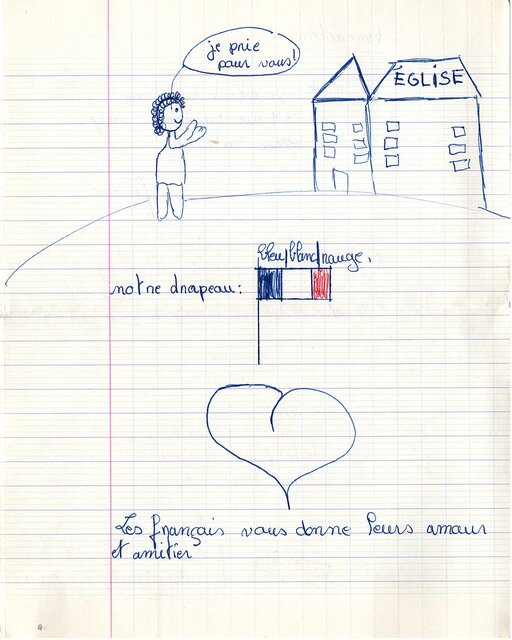 je prie
pour vous!
ÉGLISE
bleu/blanc/rouge.
notre drapeau:
Les français vous donne leurs amour
et amitier